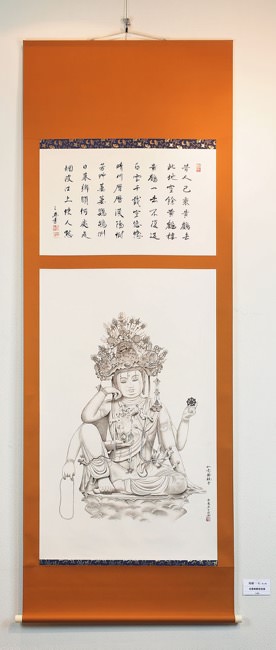 昔人已乗黄鶴去
此地空餘黄鶴樓
黄鶴一去不復返
白雲千載空悠悠
晴川歴歴漢陽樹
芳草萋萋鸚鵡洲
日暮鄉關何處是
煙波江上使人愁